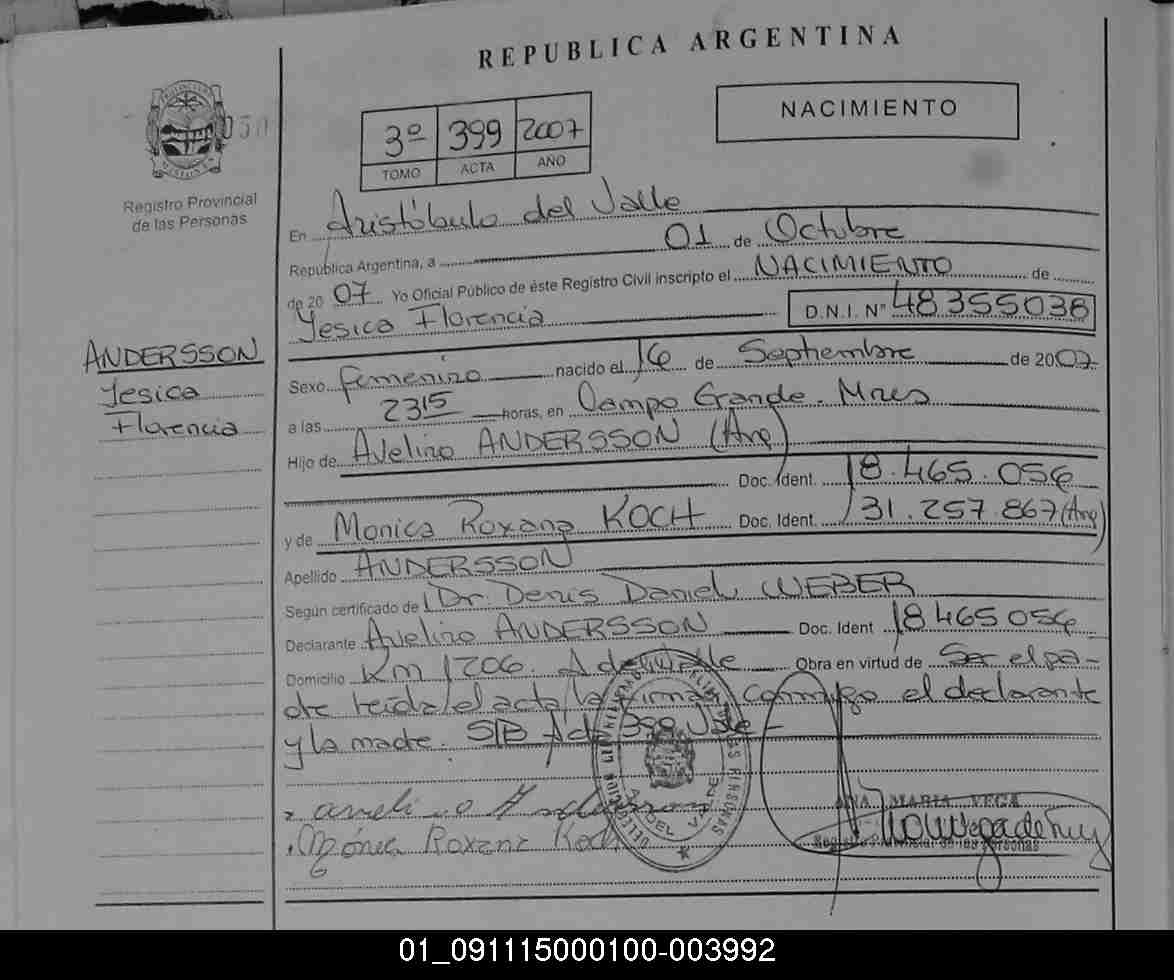 REPUBLICA ARGENTINA
NACIMIENTO
3º 399 2007
TOMO ACTA AÑO
Registro Provincial
de las Personas
En Aristóbulo del Valle
República Argentina, a 01 de Octubre
de 2007 Yo Oficial Público de éste Registro Civil inscripto el NACIMIENTO de
Yesica Florencia D.N.I. Nº 48355038
ANDERSSON
Yesica
Florencia
Sexo femenino nacido el 16 de Septiembre de 2007
a las 2315 horas, en Campo Grande. Mnes
Hijo de Avelino ANDERSSON (Arg)
Doc. Ident. 18.465.056
y de Monica Roxana KOCH Doc. Ident. 31.257.867 (Arg)
Apellido ANDERSSON
Según certificado de Dr. Denis Daniel WEBER
Declarante Avelino ANDERSSON Doc. Ident 18465056
Domicilio Km 1206. A del Valle Obra en virtud de Ser el pa-
dre leída el acta la firman conmigo el declarante
y la madre. S/B Acta 399 Vale -
Mónica Roxana Koch
ANA MARIA VEGA
01_091115000100-003992